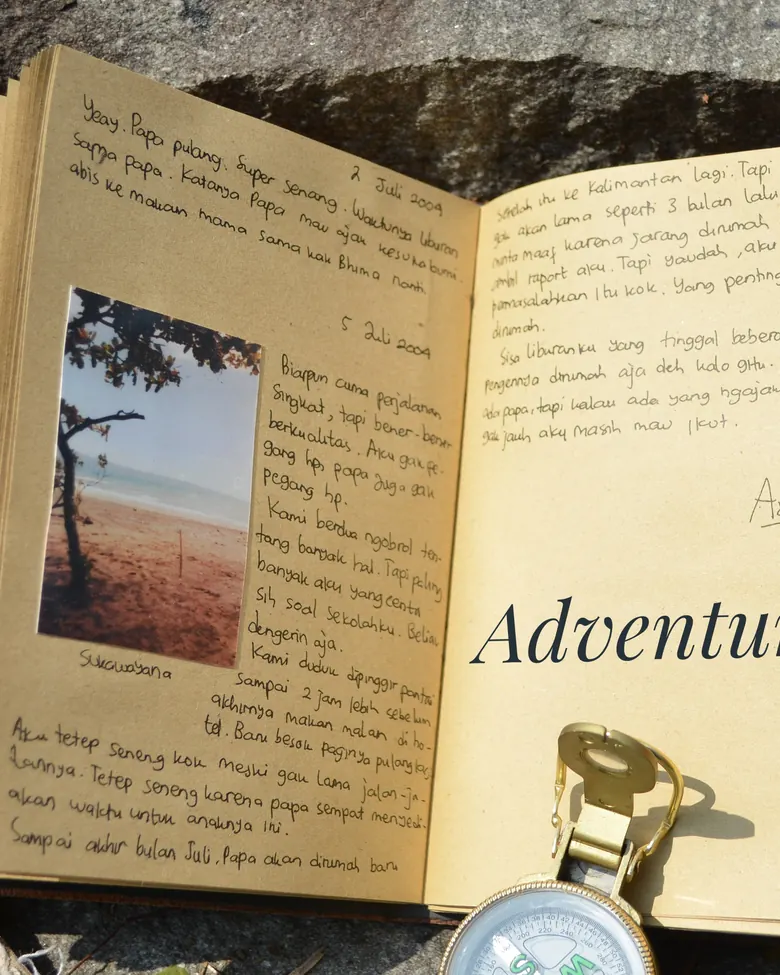 2 Juli 2009
Yeay. Papa pulang. Super senang. Waktunya liburan
sama papa. Katanya Papa mau ajak kesukabumi
abis ke makam mama sama kak Bhima nanti.
5 Juli 2009
Biarpun cuma perjalanan
singkat, tapi bener-bener
berkualitas. Aku gak pe-
gang hp, papa juga gak
pegang hp.
Kami berdua ngobrol ten-
tang banyak hal. Tapi paling
banyak aku yang cerita
sih soal sekolahku. Beliau
dengerin aja.
Kami duduk dipinggir pantai
sampai 2 jam lebih sebelum
akhirnya makan malam di ho-
tel. Baru besok paginya pulang
Sukawayana
Aku tetep seneng kok meski gak lama jalan-ja-
lannya. Tetep seneng karena papa sempat menyedi-
akan waktu untuk anaknya ini.
Sampai akhir bulan Juli, Papa akan dirumah baru
Setelah itu ke Kalimantan lagi. Tapi
gak akan lama seperti 3 bulan lalu
minta maaf karena jarang dirumah
ambil raport aku. Tapi yaudah, aku
permasalahkan itu kok. Yang penting
dirumah.
Sisa liburanku yang tinggal bebera
Pengennya dirumah aja deh kalo gitu.
ada papa, tapi kalau ada yang ngajak
gak jauh aku masih mau ikut.
Adventu